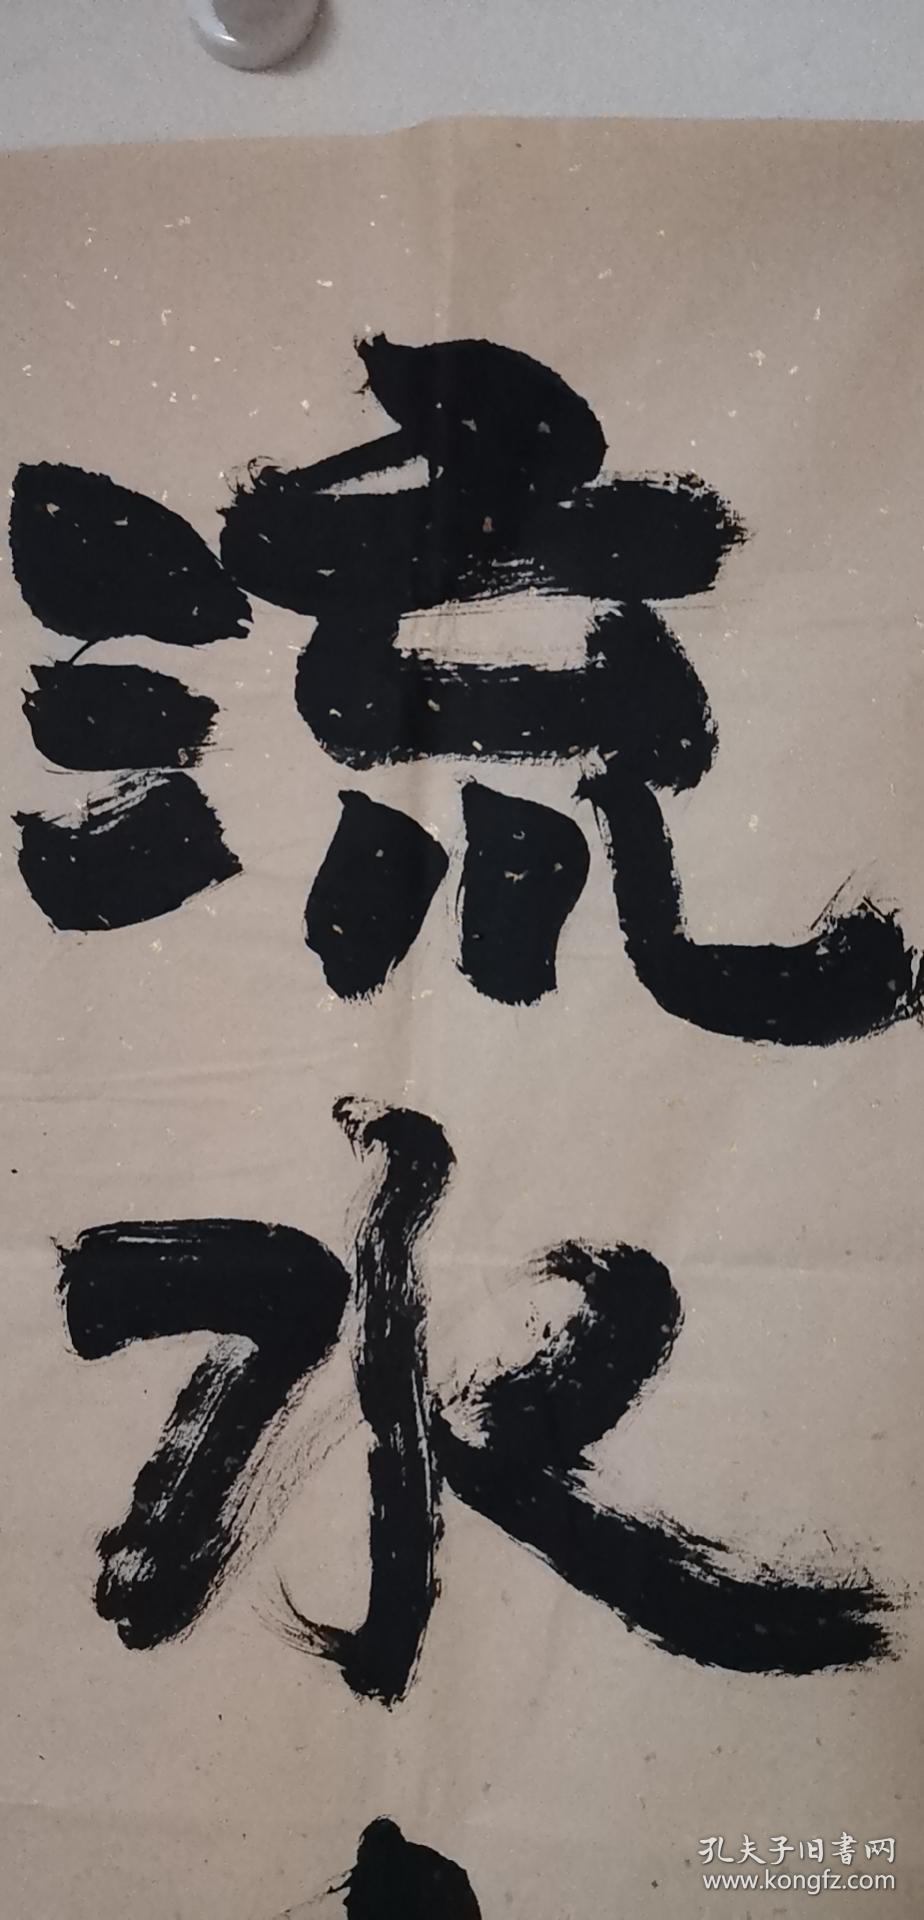 流
水
孔夫子旧書网
www.kongfz.com